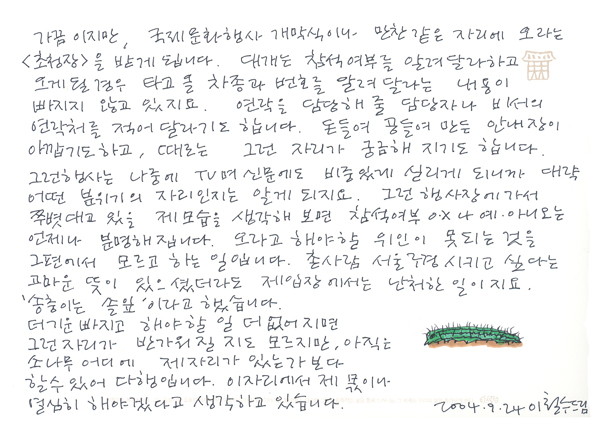 가끔이지만, 국제문화행사 개막식이나 만찬 같은 자리에 오라는
<초청장>을 받게 됩니다. 대개는 참석여부를 알려달라하고
오게될 경우 타고 올 차종과 번호를 알려 달라는 내용이
빠지지 않고 있지요. 연락을 담당해 줄 담당자나 비서의
연락처를 적어 달라기도 합니다. 돈들여 공들여 만든 안내장이
아깝기도하고, 때로는 그런 자리가 궁금해 지기도 합니다.
그런행사는 나중에 TV며 신문에도 비중있게 실리게 되니까 대략
어떤 분위기의 자리인지는 알게 되지요. 그런 행사장에 가서
쭈볏대고 있을 제모습을 생각해 보면 참석여부 o·x나 예·아니오는
언제나 분명해집니다. 오라고 해야할 위인이 못되는 것을
그편에서 모르고 하는 일입니다. 촌사람 서울구경 시키고 싶다는
고마운 뜻이 있으셨더라도 제입장에서는 난처한 일이지요.
'송충이는 솔잎'이라고 했습니다.
더기운 빠지고 해야할 일 더 없어지면
그런자리가 반가워질 지도 모르지만, 아직은
소나무 어디에 제자리가 있는가보다
할수 있어 다행입니다. 이자리에서 제 몫이나
열심히 해야겠다고 생각하고 있습니다.
2004.9.24 이철수드림